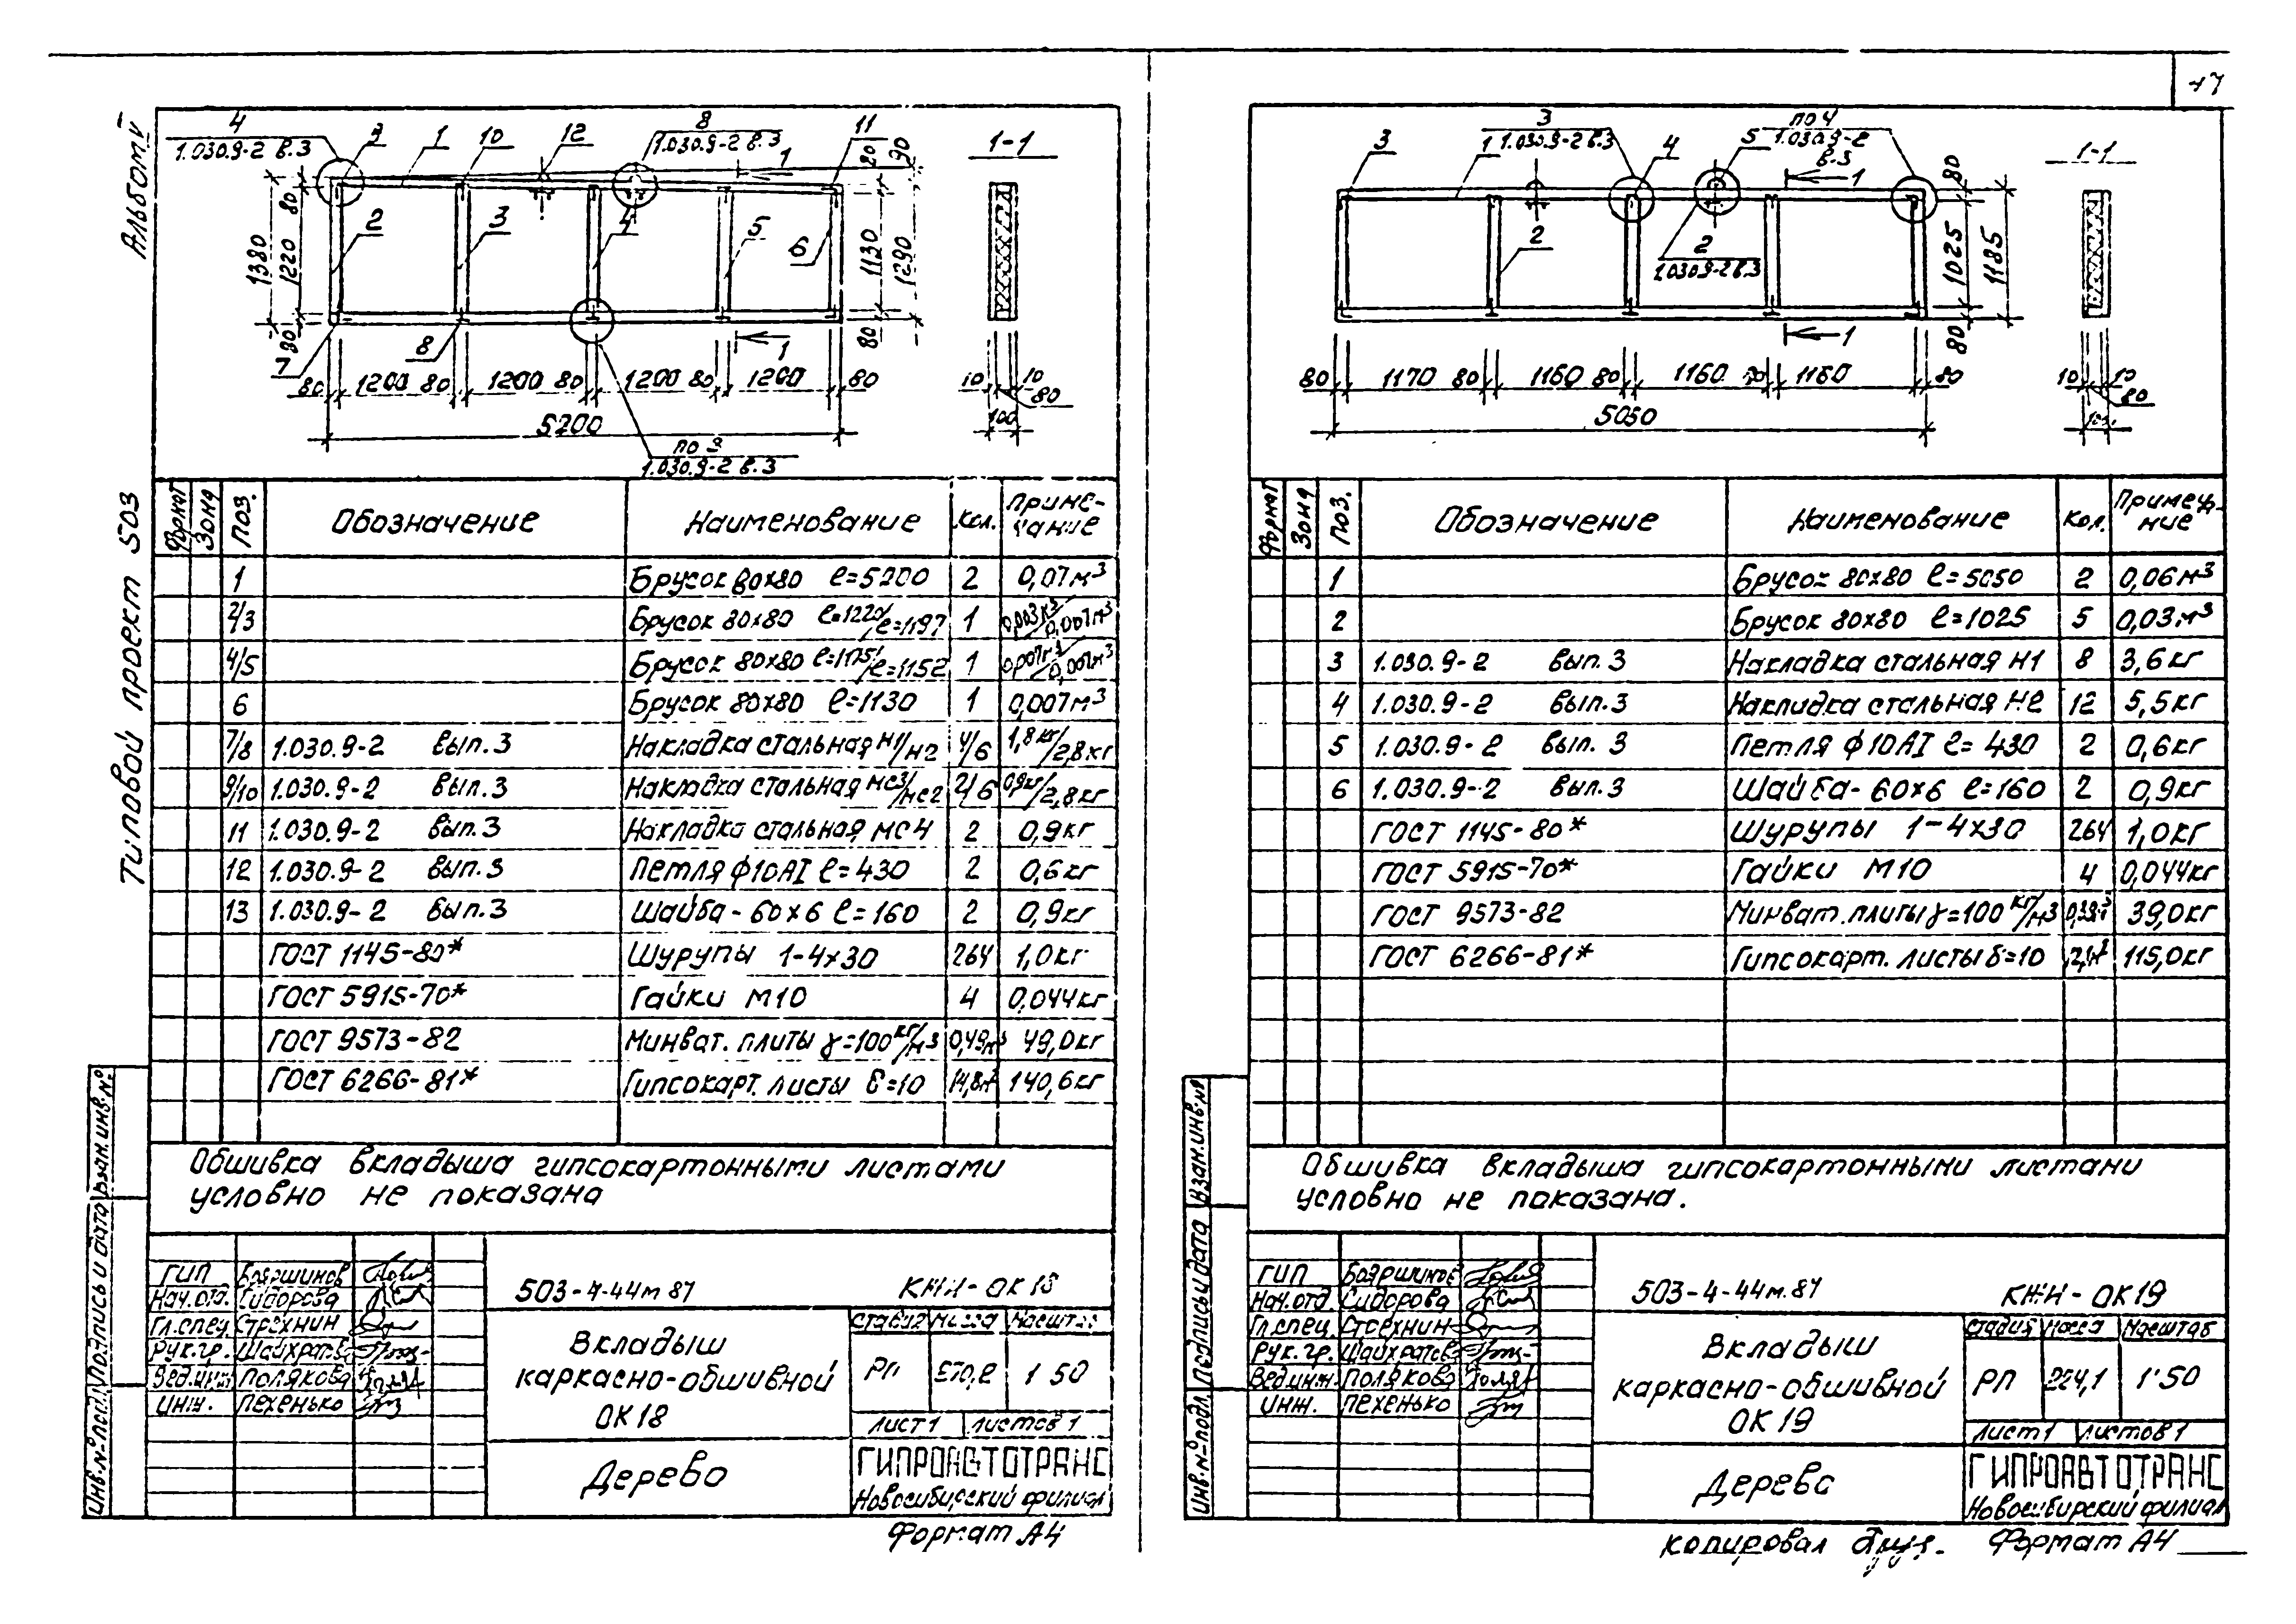 Альбом V
Типовой проект 503
4
1.030.9-2 в.3
3
1
10
12
8
1.030.9-2 в.3
11
1
1-1
20
90
80
1220
1380
80
2
3
4
5
6
1130
1290
80
7
8
1
80 1200 80 1200 80 1200 80 1200 80
5200
1.030.9-2 в.3
10 10
80
100
Формат Зона Поз. Обозначение Наименование Кол. Примечание
1 Брусок 80х80 ℓ=5200 2 0,07м³
2/3 Брусок 80х80 ℓ=1220/ℓ=1197 1 /0,007м³
4/5 Брусок 80х80 ℓ=1175/ℓ=1152 1 0,007м³/0,007м³
6 Брусок 80х80 ℓ=1130 1 0,007м³
7/8 1.030.9-2 вып.3 Накладка стальная Н1/Н2 4/6 1,8кг/2,8кг
9/10 1.030.9-2 вып.3 Накладка стальная МС3/МС2 2/6 0,9кг/2,8кг
11 1.030.9-2 вып.3 Накладка стальная МС4 2 0,9кг
12 1.030.9-2 вып.3 Петля ф10АI ℓ=430 2 0,6кг
13 1.030.9-2 вып.3 Шайба-60х6 ℓ=160 2 0,9кг
ГОСТ 1145-80* Шурупы 1-4х30 264 1,0кг
ГОСТ 5915-70* Гайки М10 4 0,044кг
ГОСТ 9573-82 Минват. плиты γ=100кг/м3 0,49м3 49,0кг
ГОСТ 6266-81* Гипсокарт. листы δ=10 14,8м² 140,6кг
Обшивка вкладыша гипсокартонными листами
условно не показана
Инв.№подл. Подпись и дата Взам.инв.№
ГИП Бояршинов
Нач.отд. Сидорова
Гл.спец. Стрехнин
Рук.гр.
Вед.инж. Полякова
Инж. Пехенько
503-4-44м 87 КЖИ-ОК18
Вкладыш
каркасно-обшивной
ОК18
Стадия Масса Масштаб
РП 1 50
Лист 1 Листов 1
Дерево
ГИПРОАВТОТРАНС
Новосибирский филиал
Формат А4
3
3
1.030.9-2 в.3
1
4
5
по 4
1.030.9-2
в.3
1
1-1
2
2
1.030.9-2 в.3
80
1025
1185
80
1
80 1170 80 1160 80 1160 80 1160 80
5050
10 10
80
Формат Зона Поз. Обозначение Наименование Кол. Примечание
1 Брусок 80х80 ℓ=5050 2 0,06м3
2 Брусок 80х80 ℓ=1025 5 0,03м3
3 1.030.9-2 вып.3 Накладка стальная Н1 8 3,6кг
4 1.030.9-2 вып.3 Накладка стальная Н2 12 5,5кг
5 1.030.9-2 вып.3 Петля ф10АI ℓ=430 2 0,6кг
6 1.030.9-2 вып.3 Шайба-60х6 ℓ=160 2 0,9кг
ГОСТ 1145-80* Шурупы 1-4х30 264 1,0кг
ГОСТ 5915-70* Гайки М10 4 0,044кг
ГОСТ 9573-82 Минват.плиты γ=100кг/м3 39,0кг
ГОСТ 6266-81* Гипсокарт. листы δ=10 115,0кг
Обшивка вкладыша гипсокартонными листами
условно не показана.
Инв.№подл. Подпись и дата Взам.инв.№
ГИП Бояршинов
Нач.отд. Сидорова
Гл.спец. Стрехнин
Рук.гр.
Вед.инж. Полякова
Инж. Пехенько
503-4-44м.87 КЖИ-ОК19
Вкладыш
каркасно-обшивной
ОК19
Стадия Масса Масштаб
РП 224,1 1:50
Лист 1 Листов 1
Дерево
ГИПРОАВТОТРАНС
Новосибирский филиал
Копировал Формат А4